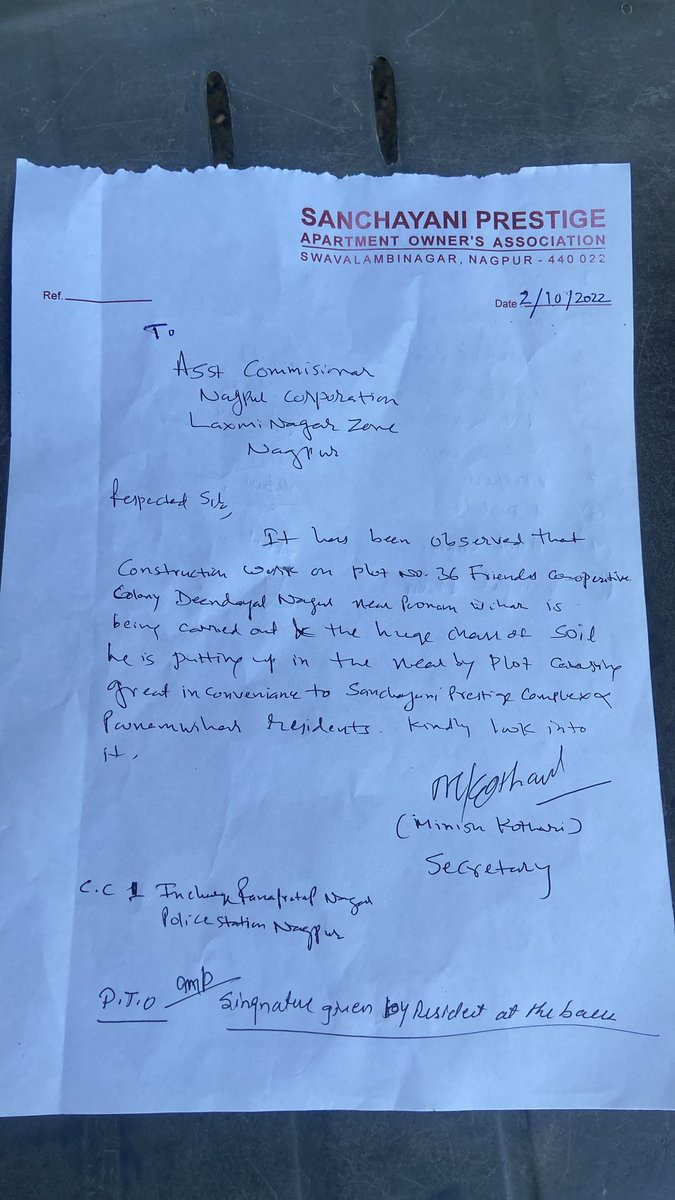 SANCHAYANI PRESTIGE
APARTMENT OWNER'S ASSOCIATION
SWAVALAMBINAGAR, NAGPUR - 440 022
Ref.
Date 2/10/2022
To
Asst Commisional
Nagpur Corporation
Laxmi Nagar Zone
Nagpur
Respected Sir,
It has been observed that
Construction work on Plot No. 36 Friends Co-operative
Colony Deendayal Nagar near Poonam Wihar is
being carried out the huge of Soil
he is putting up in the near by Plot Causing
great inconveniance to Sanchayani Prestige Complex &
Poonamwihar residents. Kindly look into
it.
MKothari
(Minish Kothari)
Secretary
C.C 1 Incharge Ranapratap Nagar
Police station Nagpur
P.T.O Singnature given by Resident at the back